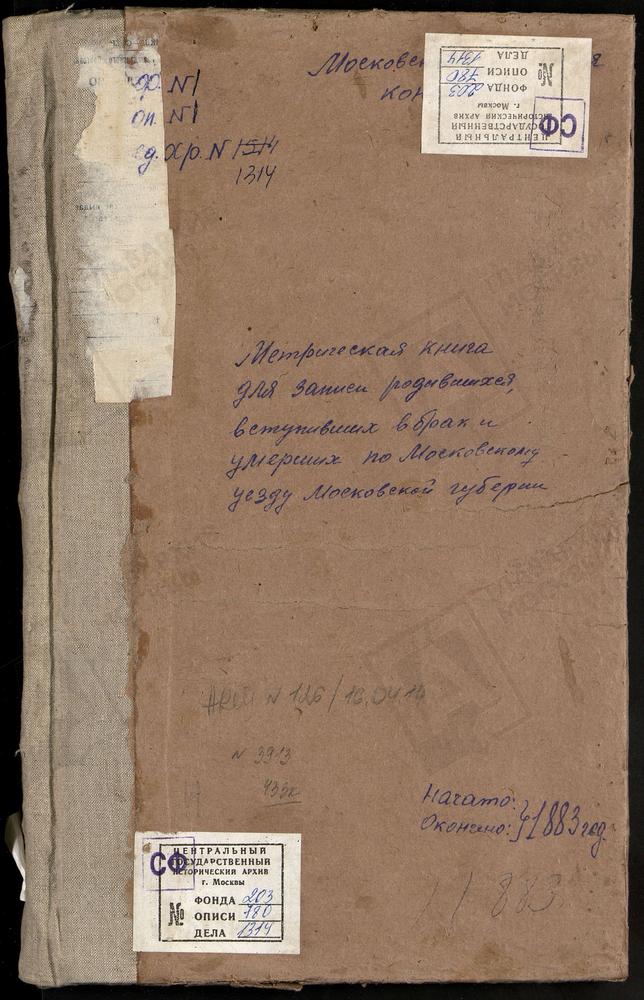 Московск
кон
ф. №1
оп. №1
ед. хр. № 1514
1314
ЦЕНТРАЛЬНЫЙ
ГОСУДАРСТВЕННЫЙ
ИСТОРИЧЕСКИЙ АРХИВ
г. Москвы
СФ
№
ФОНДА 203
ОПИСИ 780
ДЕЛА 1314
Метрическая книга
для записи родившихся,
вступивших в брак и
умерших по Московскому
уезду Московской губернии
№ 126/16.04.14
№ 3913
Начато:
Окончено: } 1883 год.
1883
СФ
ЦЕНТРАЛЬНЫЙ
ГОСУДАРСТВЕННЫЙ
ИСТОРИЧЕСКИЙ АРХИВ
г. Москвы
№
ФОНДА 203
ОПИСИ 780
ДЕЛА 1314